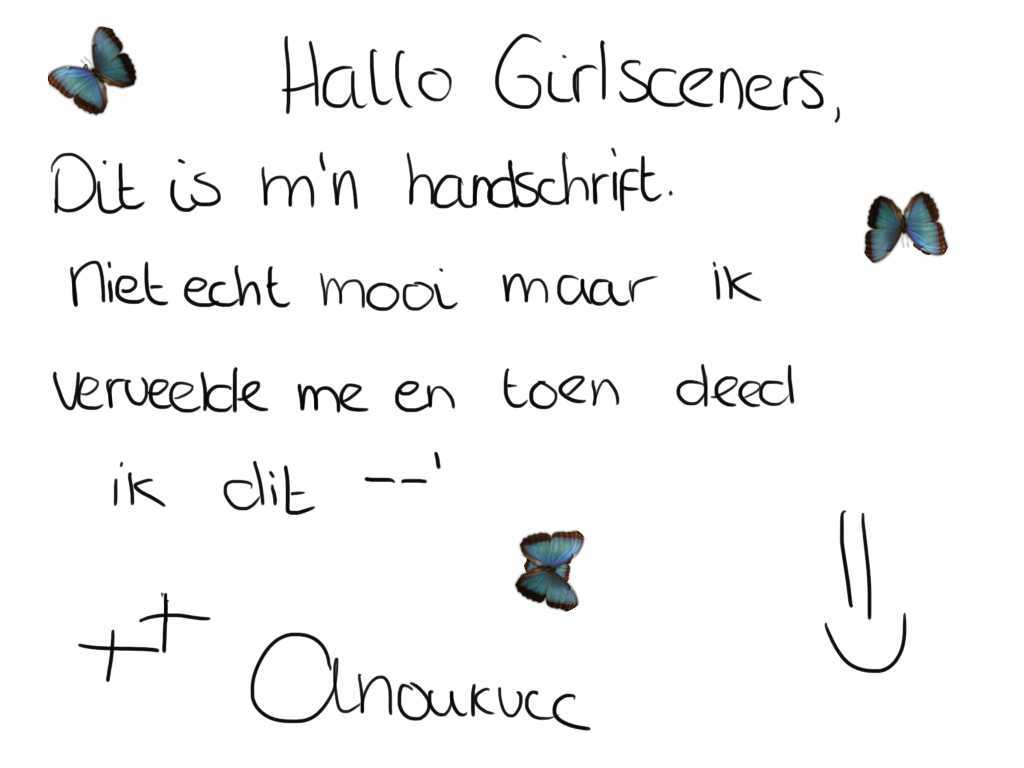 Hallo Girlsceners,
Dit is m'n handschrift.
Niet echt mooi maar ik
verveelde me en toen deed
ik dit --'
++
Anoukvcc